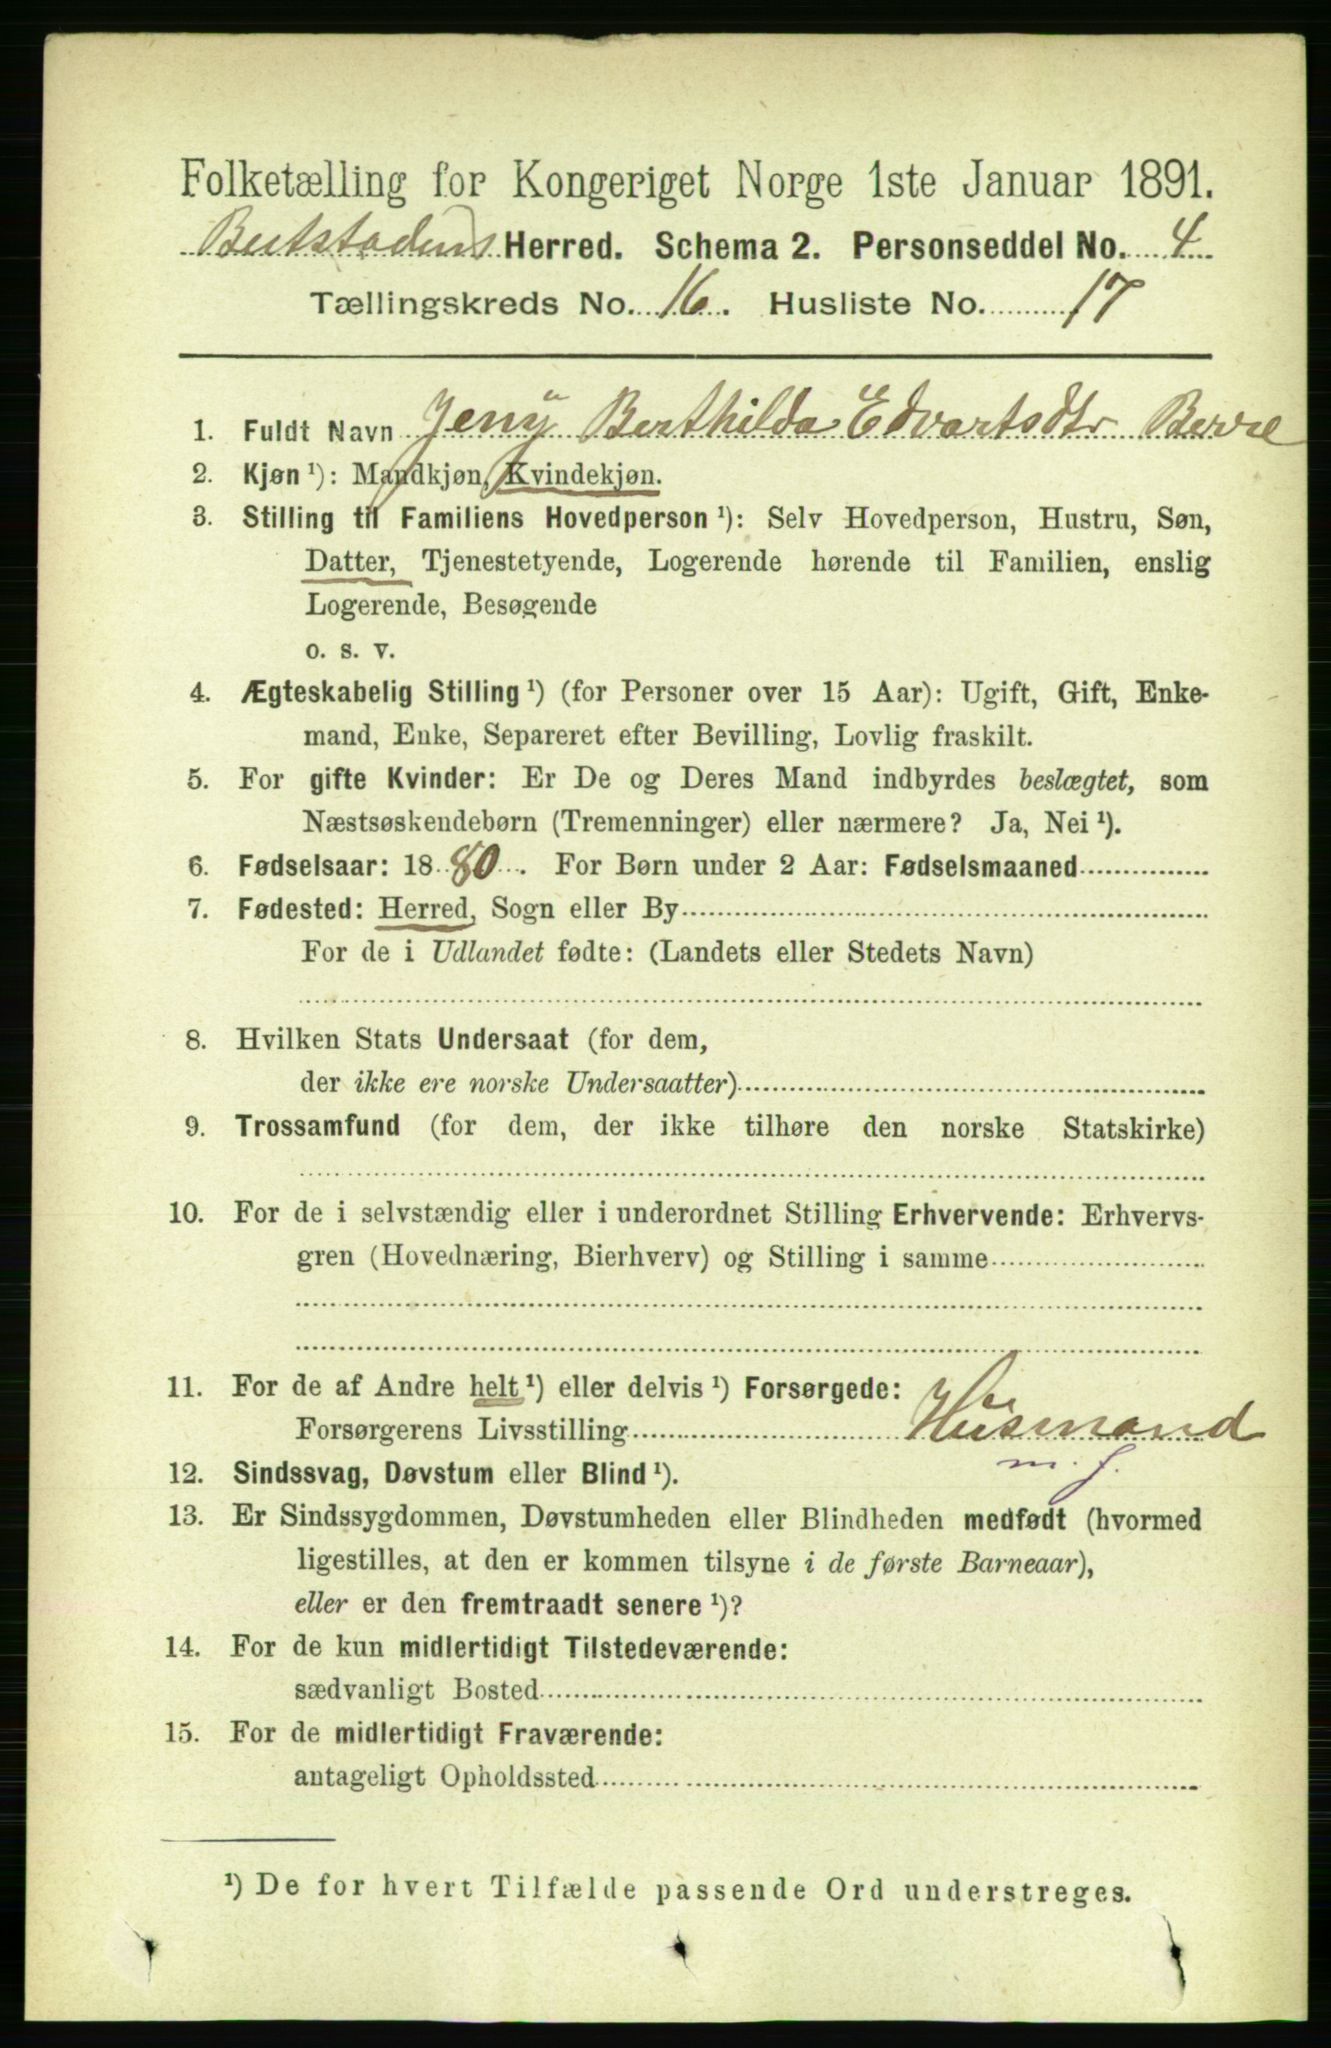 Folketælling for Kongeriget Norge 1ste Januar 1891.
Beitstadens Herred. Schema 2. Personseddel No. 4
Tællingskreds No. 16. Husliste No. 17
1. Fuldt Navn Jeny Berthilda Edvartsdtr Berre
2. Kjøn ¹): Mandkjøn, Kvindekjøn.
3. Stilling til Familiens Hovedperson ¹): Selv Hovedperson, Hustru, Søn,
Datter, Tjenestetyende, Logerende hørende til Familien, enslig
Logerende, Besøgende
o. s. v.
4. Ægteskabelig Stilling ¹) (for Personer over 15 Aar): Ugift, Gift, Enke-
mand, Enke, Separeret efter Bevilling, Lovlig fraskilt.
5. For gifte Kvinder: Er De og Deres Mand indbyrdes beslægtet, som
Næstsøskendebørn (Tremenninger) eller nærmere? Ja, Nei ¹).
6. Fødselsaar: 1880. For Børn under 2 Aar: Fødselsmaaned
7. Fødested: Herred, Sogn eller By
For de i Udlandet fødte: (Landets eller Stedets Navn)
8. Hvilken Stats Undersaat (for dem,
der ikke ere norske Undersaatter)
9. Trossamfund (for dem, der ikke tilhøre den norske Statskirke)
10. For de i selvstændig eller i underordnet Stilling Erhvervende: Erhvervs-
gren (Hovednæring, Bierhverv) og Stilling i samme
11. For de af Andre helt ¹) eller delvis ¹) Forsørgede:
Forsørgerens Livsstilling Husmand
m. j.
12. Sindssvag, Døvstum eller Blind ¹).
13. Er Sindssygdommen, Døvstumheden eller Blindheden medfødt (hvormed
ligestilles, at den er kommen tilsyne i de første Barneaar),
eller er den fremtraadt senere ¹)?
14. For de kun midlertidigt Tilstedeværende:
sædvanligt Bosted
15. For de midlertidigt Fraværende:
antageligt Opholdssted
¹) De for hvert Tilfælde passende Ord understreges.